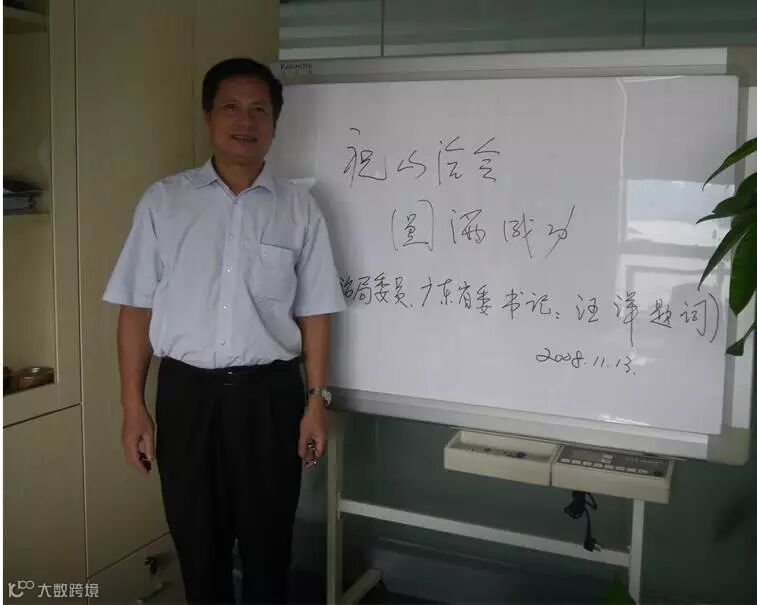 祝山洽会
圆满成功
治局委员、广东省委书记：汪洋题词）
2008.11.13.
大数跨境